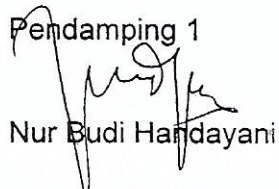 Pendamping 1
Nur Budi Handayani